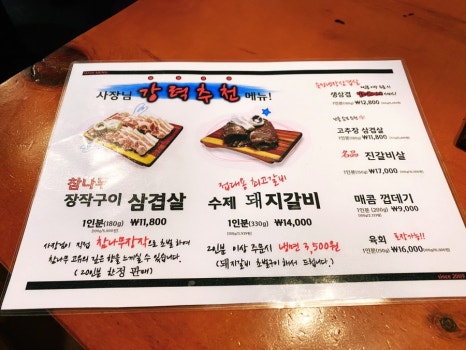 사장님 강력추천 메뉴!
참나무
장작구이 삼겹살
1인분(180g) ₩11,800
사장님이 직접 참나무장작으로 초벌 하여
참나무 고유의 깊은 향을 느끼실 수 있습니다.
(20인분 한정 판매)
접대용 최고갈비
수제 돼지갈비
1인분(330g) ₩14,000
2인분 이상 주문시 냉면 3,500원
(돼지갈비 초벌구이 해서 드립니다.)
생삼겹
₩12,800
고추장 삼겹살
₩11,800
진갈비살
₩17,000
매콤 껍데기
1인분 (200g) ₩9,000
육회 포장가능!!
₩16,000
since 2005